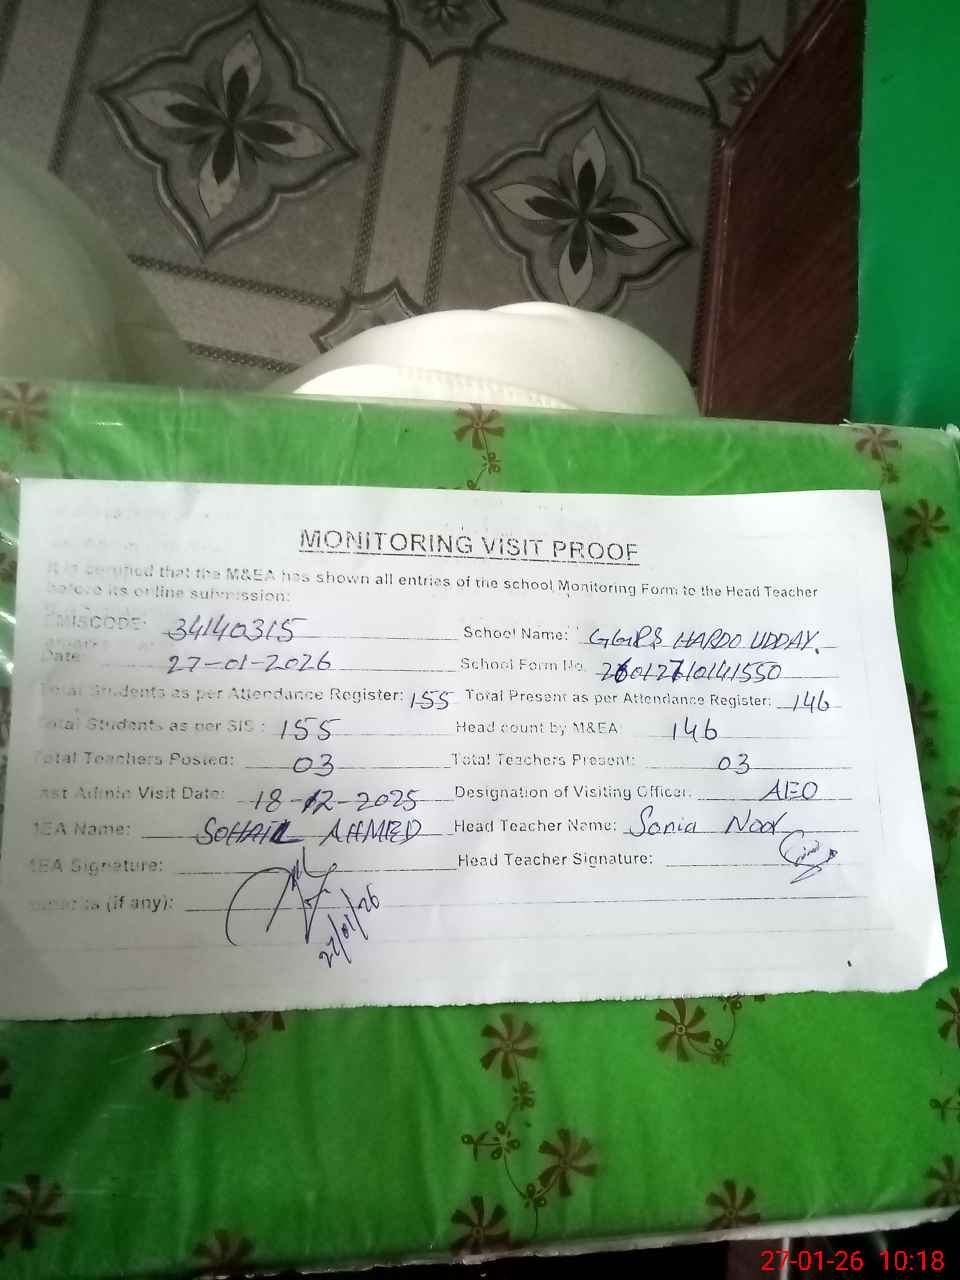 MONITORING VISIT PROOF
It is certified that the M&EA has shown all entries of the school Monitoring Form to the Head Teacher
before its online submission:
EMISCODE: 34140315 School Name: GGPS HARDO UDDAY.
Date: 27-01-2026 School Form No. 26012710141550
Total Students as per Attendance Register: 155 Total Present as per Attendance Register: 146
Total Students as per SIS : 155 Head count by M&EA: 146
Total Teachers Posted: 03 Total Teachers Present: 03
ast Admin Visit Date: 18-12-2025 Designation of Visiting Officer: AEO
1EA Name: SOHAIL AHMED Head Teacher Name: Sonia Noor
1EA Signature: Head Teacher Signature:
(if any):
27/01/26
27-01-26 10:18